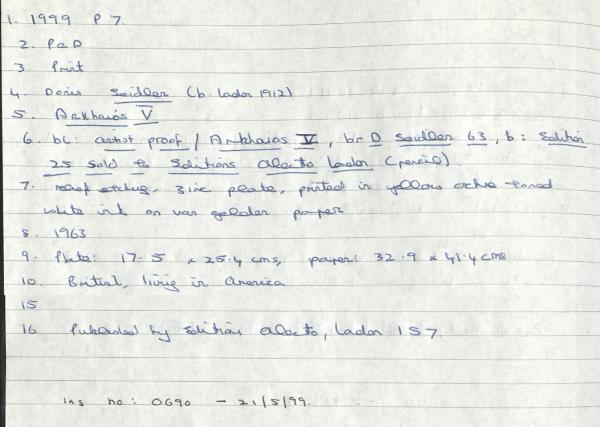 1. 1999 P 7.
2. P&D
3 Print
4. Doris Seidler (b. London 1912)
5. Arkhaios V
6. bl: artist proof / Arkhaios V, br D Seidler 63, b: Edition
25 sold to Editions Alecto London (pencil)
7. relief etching, zinc plate, printed in yellow ochre toned
white ink on van gelder paper
8. 1963
9. Plate: 17.5 x 25.4 cms, paper: 32.9 x 41.4 cms
10. British, living in America
15
16 Published by Editions Alecto, London 157.
ins no: 0690 - 21/5/99.